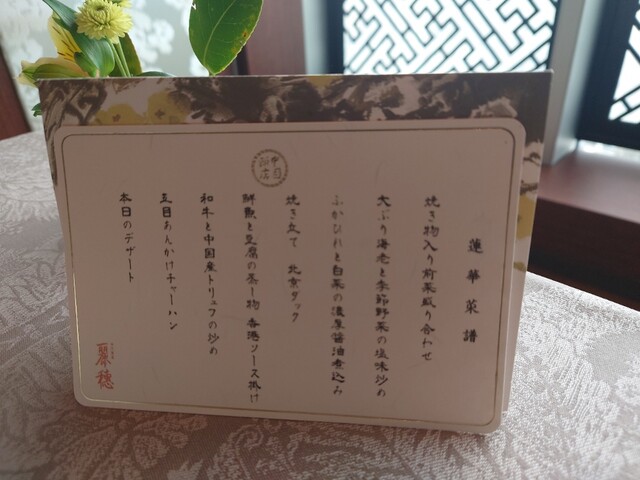 蓮華菜譜
焼き物入り前菜盛り合わせ
大ぶり海老と季節野菜の塩味炒め
ふかひれと白菜の濃厚醤油煮込み
焼き立て 北京ダック
鮮魚と豆腐の蒸し物 香港ソース掛け
和牛と中国産トリュフの炒め
五目あんかけチャーハン
本日のデザート
麗穂